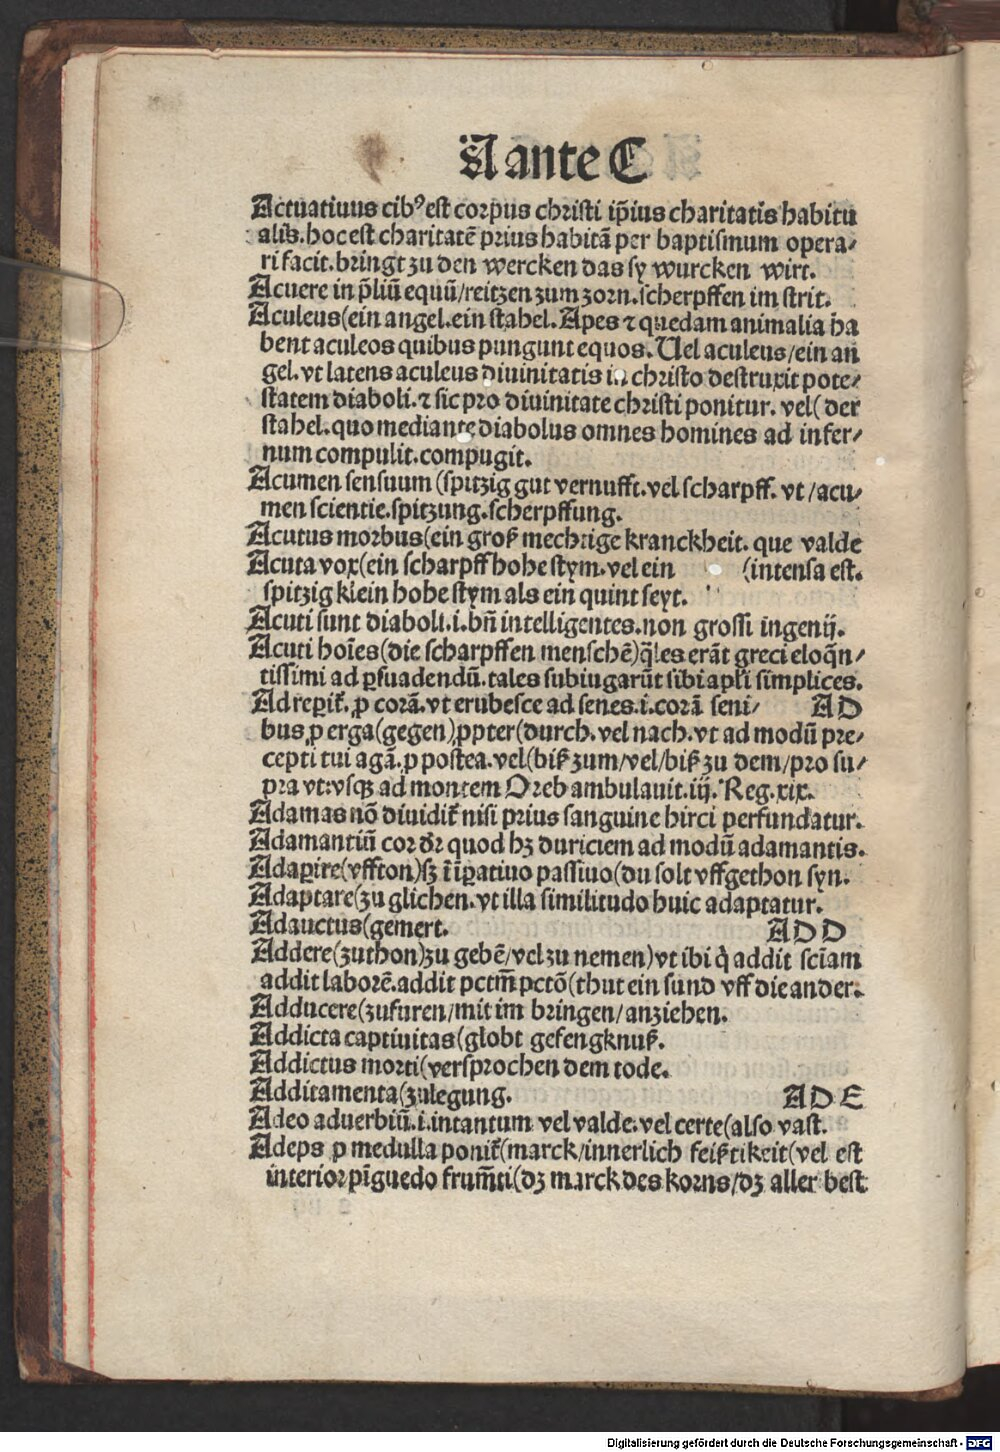 A ante C
Actuatiuus cibꝰ est corpus christi ip̄ius charitatis habitu
alis. hoc est charitatē prius habitā per baptismum opera⸗
ri facit. bringt zu den wercken das sy wurcken wirt.
Acuere in p̄liū equū/reitzen zum zorn. scherpffen im strit.
Aculeus(ein angel. ein stahel. Apes ⁊ quedam animalia ha
bent aculeos quibus pungunt equos. Uel aculeus/ein an
gel. vt latens aculeus diuinitatis in christo destruxit pote⸗
statem diaboli. ⁊ sic pro diuinitate christi ponitur. vel( der
stahel. quo mediante diabolus omnes homines ad infer⸗
num compulit. compugit.
Acumen sensuum (spitzig gut vernufft. vel scharpff. vt /acu⸗
men scientie. spitzung. scherpffung.
Acutus morbus(ein groß mechtige kranckheit. que valde
Acuta vox(ein scharpff hohe stym. vel ein (intensa est.
spitzig klein hohe stym als ein quint seyt.
Acuti sunt diaboli .i. bn̄ intelligentes. non grossi ingenij.
Acuti hoīes(die scharpffen menschē)q̄les erāt greci eloq̄n⸗
tissimi ad ꝑsuadendū. tales subiugarūt sibi apl̄i simplices.
Ad reꝑit᷑. ꝓ corā. vt erubesce ad senes .i. corā seni⸗ AD
bus ꝓ erga(gegen)ꝓpter(durch. vel nach. vt ad modū pre⸗
cepti tui agā. ꝓ postea. vel(biß zum/vel/biß zu dem/pro su⸗
pra vt: vsqꝫ ad montem Oreb ambulauit. iij. Reg. xix.
Adamas nō diuidit᷑ nisi prius sanguine hirci perfundatur.
Adamantiū cor dr̄ quod hꝫ duriciem ad modū adamantis.
Adaꝑire(vffton)sꝫ ī īꝑatiuo passiuo(du solt vffgethon syn.
Adaptare(zu glichen. vt illa similitudo huic adaptatur.
Adauctus(gemert. ADD
Addere(zuthon)zu gebē/vel zu nemen)vt ibi q̇ addit sciam
addit laborē. addit pctm̄ pctō(thut ein sund vff die ander.
Adducere(zufuren/mit im bringen/anziehen.
Addicta captiuitas(globt gefengknuß.
Addictus morti(versprochen dem tode.
Additamenta(zulegung. ADE
Adeo aduerbiū .i. intantum vel valde. vel certe(also vast.
Adeps ꝓ medulla ponit᷑(marck/innerlich feißtikeit(vel est
interior pīguedo frum̄ti(dꝫ marck des korns/dꝫ aller best
Digitalisierung gefördert durch die Deutsche Forschungsgemeinschaft - DFG